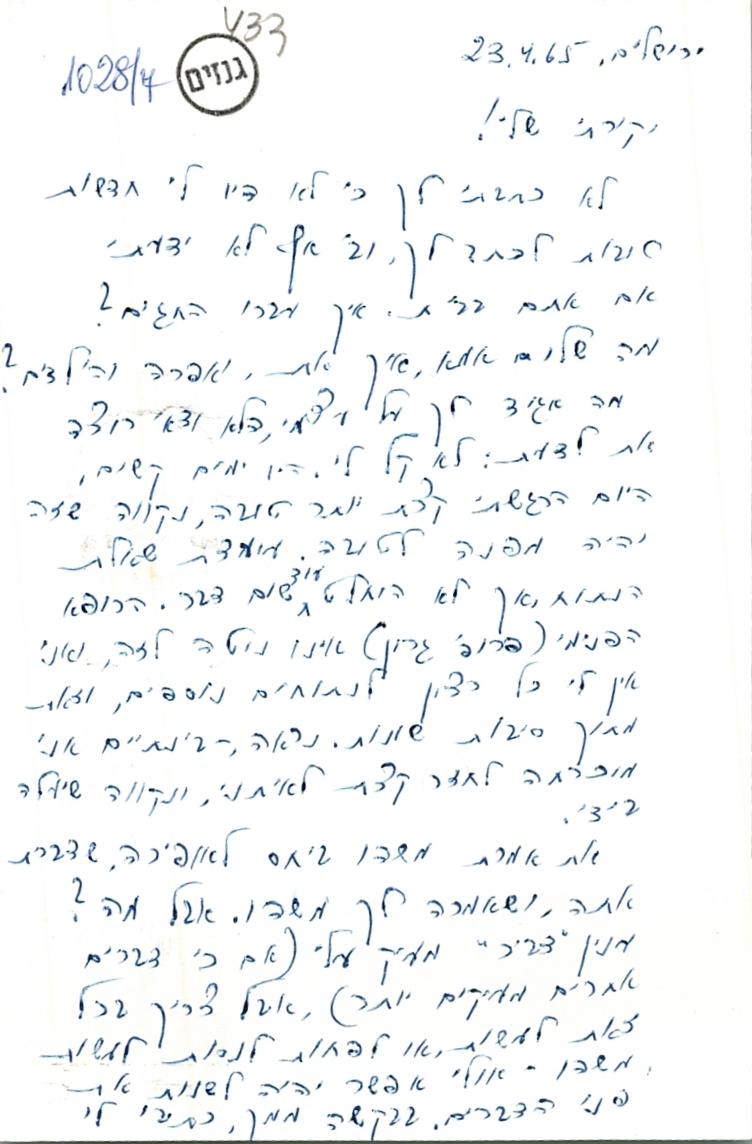 433
1028/4
גנזים
ירושלים, 23.4.65
יקירתי שלי!
לא כתבתי לך כי לא היו לי חדשות
טובות לכתב לך, וב' אף לא ידעתי
אם אתם בבית. איך עברו החגים?
מה שלום אמא, ואיך את, אפרה והילדים?
מה אגיד לך על עצמי, הלא ודאי רוצה
את לדעת: לא קל לי. היו ימים קשים,
היום הרגשתי קצת יותר טובה, נקווה שזה
יהיה מפנה לטובה. מיועדת שאלת
הנתוח, אך לא הוחלט עוד שום דבר. הרופא
הפנימי (פרופ' גרון) אינו נוטה לזה, ואני
אין לי כל רצון לנתוחים נוספים, וזאת
מתוך סיבות שונות. נראה, - בינתיים אני
מוכרחה לחזר קצת לאיתני, ונקווה שיעלה
בידי.
את אמרת משהו ביחס לאופירה, שדברת
אתה, ושאמרה לך משהו. אבל מה?
ענין "דביר" מעיק עלי (אם כי דברים
אחרים מעיקים יותר), אבל צריך בכל
זאת לעשות, או לפחות לנסות לעשות
משהו - אולי אפשר יהיה לשנות את
פני הדברים. בבקשה ממך, כתבי לי